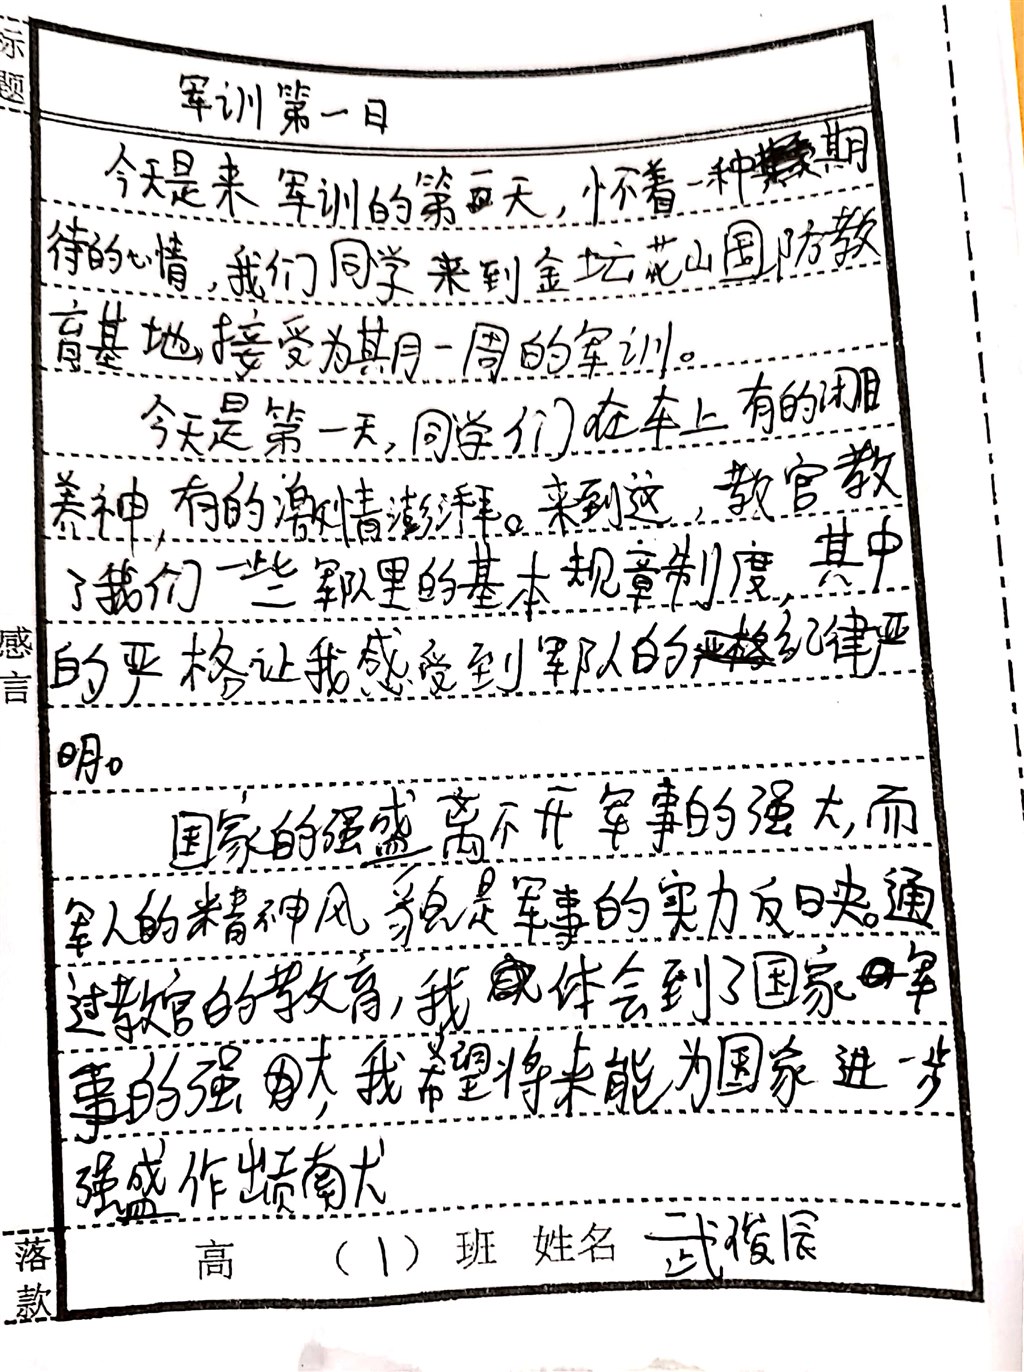 标题
军训第一日
今天是来军训的第一天，怀着一种期
待的心情，我们同学来到金坛花山国防教
育基地，接受为其月一周的军训。
今天是第一天，同学们在车上有的闭目
养神，有的激情澎湃。来到这，教官教
了我们一些军队里的基本规章制度，其中
的严格让我感受到军队的纪律严
明。
感言
国家的强盛离不开军事的强大，而
军人的精神风貌是军事的实力反映。通
过教官的教育，我体会到了国家军
事的强大，我希望将来能为国家进一步
强盛作出贡献
落款
高（1）班 姓名 武骏辰